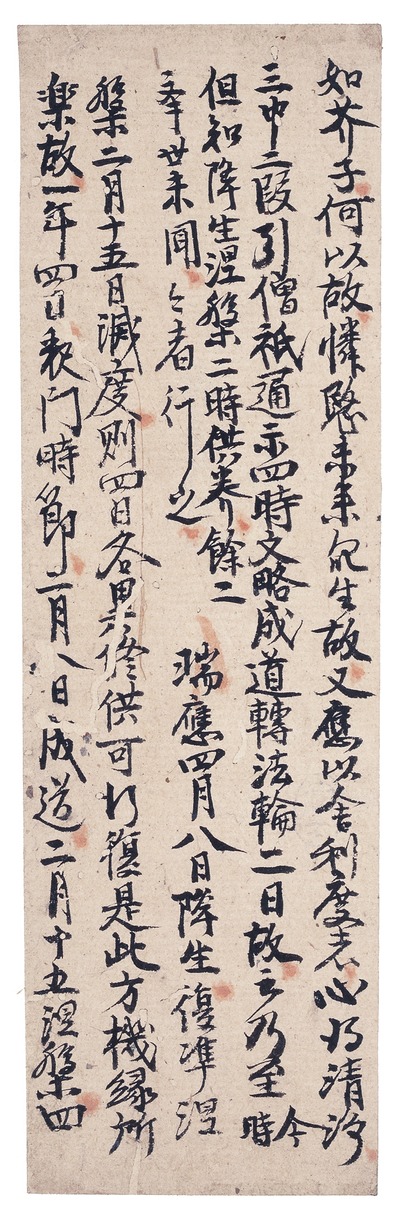 如芥子何以故憐愍未来众生故又應以舍利度者心得清净
三中二段引僧祇通示四時文略成道轉法輪二日故云乃至今時
但知降生涅槃二時供养餘二
举世未聞〻者行之 瑞應四月八日降生復準涅
槃二月十五日滅度則四日各異修供可行復是此方機緣所
樂故一年四日表門時節二月八日成道二月十五涅槃四